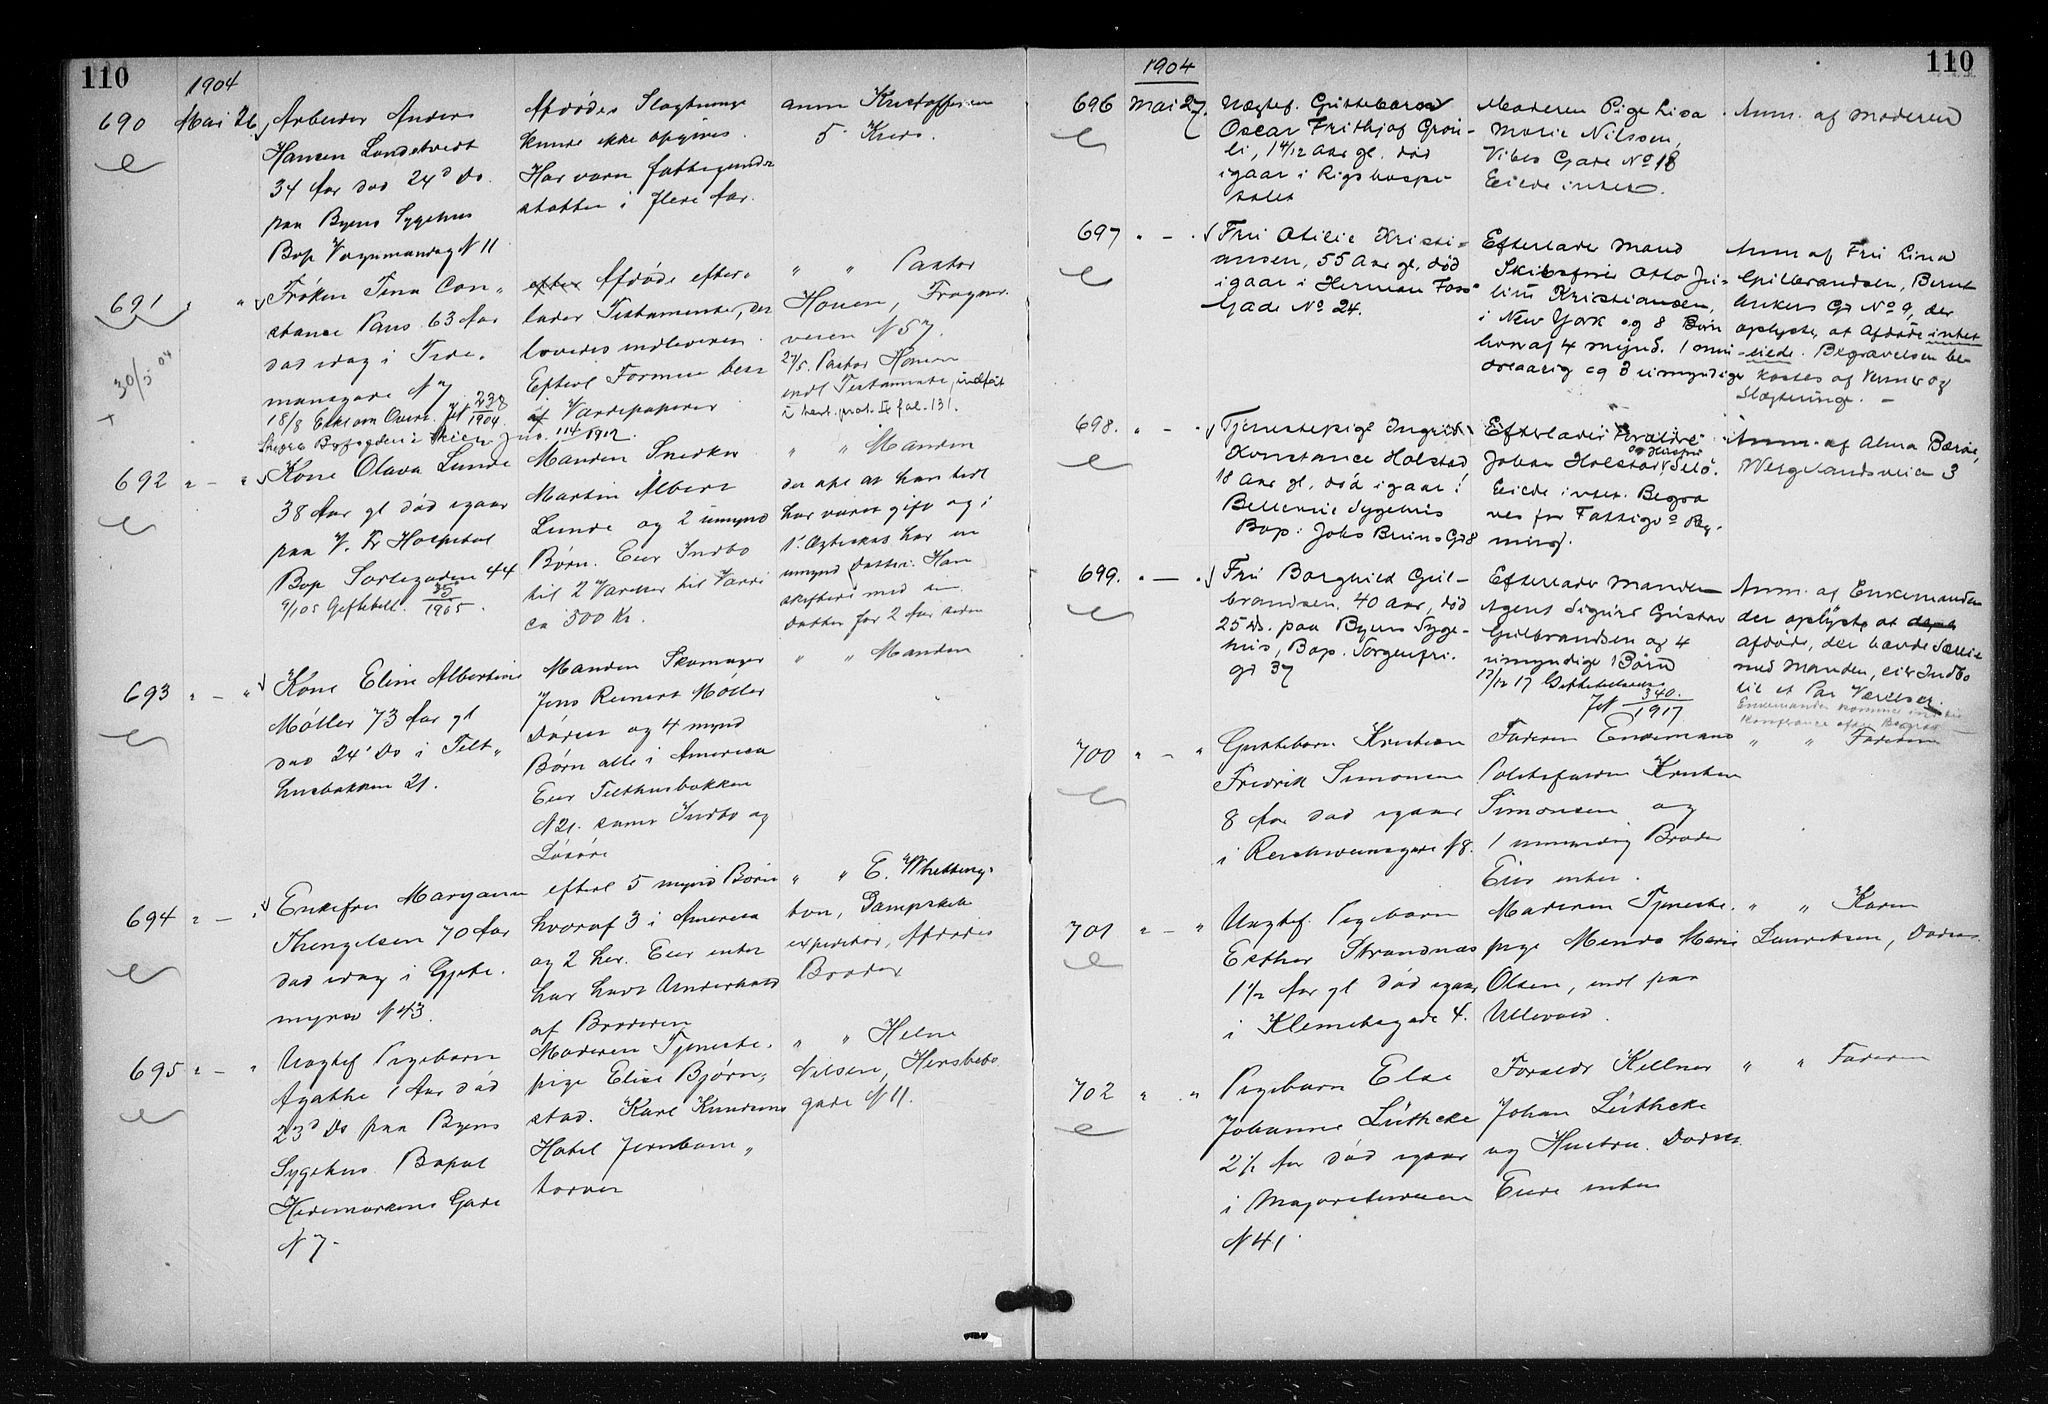 110
1904
690 Mai 26
Arbeider Anders
Hansen Lundetvedt
34 Aar død 24d Ds.
paa Byens Sygehus
Bop Vognmandsg N 11
Afdødes Slægtninge
kunde ikke opgives.
Har været fattigunder
støttet i flere Aar.
anm Kristoffersen
5. Kreds.
691 " "
30/5 04
+
Frøken Tina Con-
stance Paus 63 Aar
død idag i Tide-
mansgade N 7
18/8 Jt 238/1904
114/1912
efter Afdøde efter-
lader Testamente, der
lovedes indleveret
Efterl Formue best
af Værdipapirer
" " Pastor
Houen, Frogner-
veien N 57.
27/5. Pastor Houen
indl Testamente, indført
i test. prot. II fol. 131.
692 " - "
Kone Olava Lunde
38 Aar gl død igaar
paa V. Kr Hospital
Bop Sorligaden 44
9/1 05 Giftebell. 35/1905.
Manden Snedker
Martin Albert
Lunde og 2 umynd
Børn. Eier Indbo
til 2 Værelser til Værdi
ca 500 Kr.
" " Manden
der opl at han før
har været gift og i
1. Ægteskab har en
umynd Datter. Han
skiftet med sin
Datter for 2 Aar siden
693 " - "
Kone Eline Albertine
Møller 73 Aar gl
død 24' Ds i Telt-
husbakken 21.
Manden Skomager
Jens Reinert Møller
Døren og 4 mynd
Børn alle i America
Eier Telthusbakken
N 21. samt Indbo og
Løsøre
" " Manden
694 " - "
Enkefru Maryann
Thengelsen 70 Aar
død idag i Gjete-
myrsv N 43.
efterl 5 mynd Børn
hvoraf 3 i America
og 2 her. Eier intet
har havt Underhold
af Broderen
" " E. Whitting-
ton, Dampskib
expeditør, Afdødes
Broder
695 " - "
Uægtef Pigebarn
Agathe 1 Aar død
23d Ds paa Byens
Sygehus Bopæl
Hedemarkens Gade
N 7.
Moderen Tjeneste-
pige Elise Bjørn-
stad. Karl Knudsens
Hotel Jernban-
torvet
" " Helne
Nilsen, Herslebs
gade N 11.
110
1904
696 Mai 27.
Uægtef. Guttebarn
Oscar Frithjof Grøn-
li, 1 4/12 Aar gl. død
igaar i Rigshospi-
talet
Moderen Pige Lisa
Marie Nilssen,
Vibes Gade No 18
Eiede intet.
Anm. af Moderen
697 " - "
Fru Otilie Kristi-
ansen, 55 Aar gl. død
igaar i Herman Foss'
Gade No 24.
Efterlader Mand
Skibsfører Otto Ju-
lius Kristiansen,
i New York og 8 Børn
hvoraf 4 mynd. 1 min-
dreaarig og 3 umyndige
Anm af Fru Lina
Gulbrandsen, Bernt
Ankers Gd No 9, der
oplyste, at Afdøde intet
eiede. Begravelsen be-
kostes af Venner og
Slægtninge. -
698. " - "
Tjenestepige Ingrid
Konstance Holstad
18 Aar gl, død igaar i
Bellevue Sygehus
Bop: Johs Bruns Gd 8
Efterlader Forældre
Johan Holstad og Hustru
Eiede intet. Begra
ves for Fattigv Reg-
ning.
Anm. af Alma Bærø,
Wergelandsveien 3
699. " - "
Fru Borghild Gul-
brandsen. 40 Aar, død
25 ds. paa Byens Syge-
hus, Bop. Sorgenfri-
gd 37
Efterlader Manden
Agent Sigurd Gustav
Gulbrandsen og 4
umyndige Børn
17/12 17 Giftebell
Jt 340./1917
Anm. af Enkemanden
der oplyste at
afdøde, der havde Særeie
med Manden, eier Indbo
til et Par Værelser.
Enkemanden kommer
Konferance efter Begrav
700 " - "
Guttebarn Kristian
Fredrik Simonsen
8 Aar død igaar
i Reichweinsgade N 8.
Faderen Enkemand
Politifuldm Kristian
Simonsen og
1 umyndig Broder
Eier intet.
" " Faderen
701 " - "
Uægtef. Pigebarn
Esther Strandnæs
1 1/2 Aar gl død igaar
i Klemetsgade 4.
Moderen Tjeneste-
pige Marie
Olsen, indl paa
Ullevold.
" " Karen
Lauritsen, Dødsst.
702 " "
Pigebarn Else
Johanne Lüthcke
2 1/2 Aar død igaar
i Majorstuveien
N 41.
Foreldr Kellner
Johan Lüthcke
og Hustru. Dødsst.
Eiede intet
" " Faderen